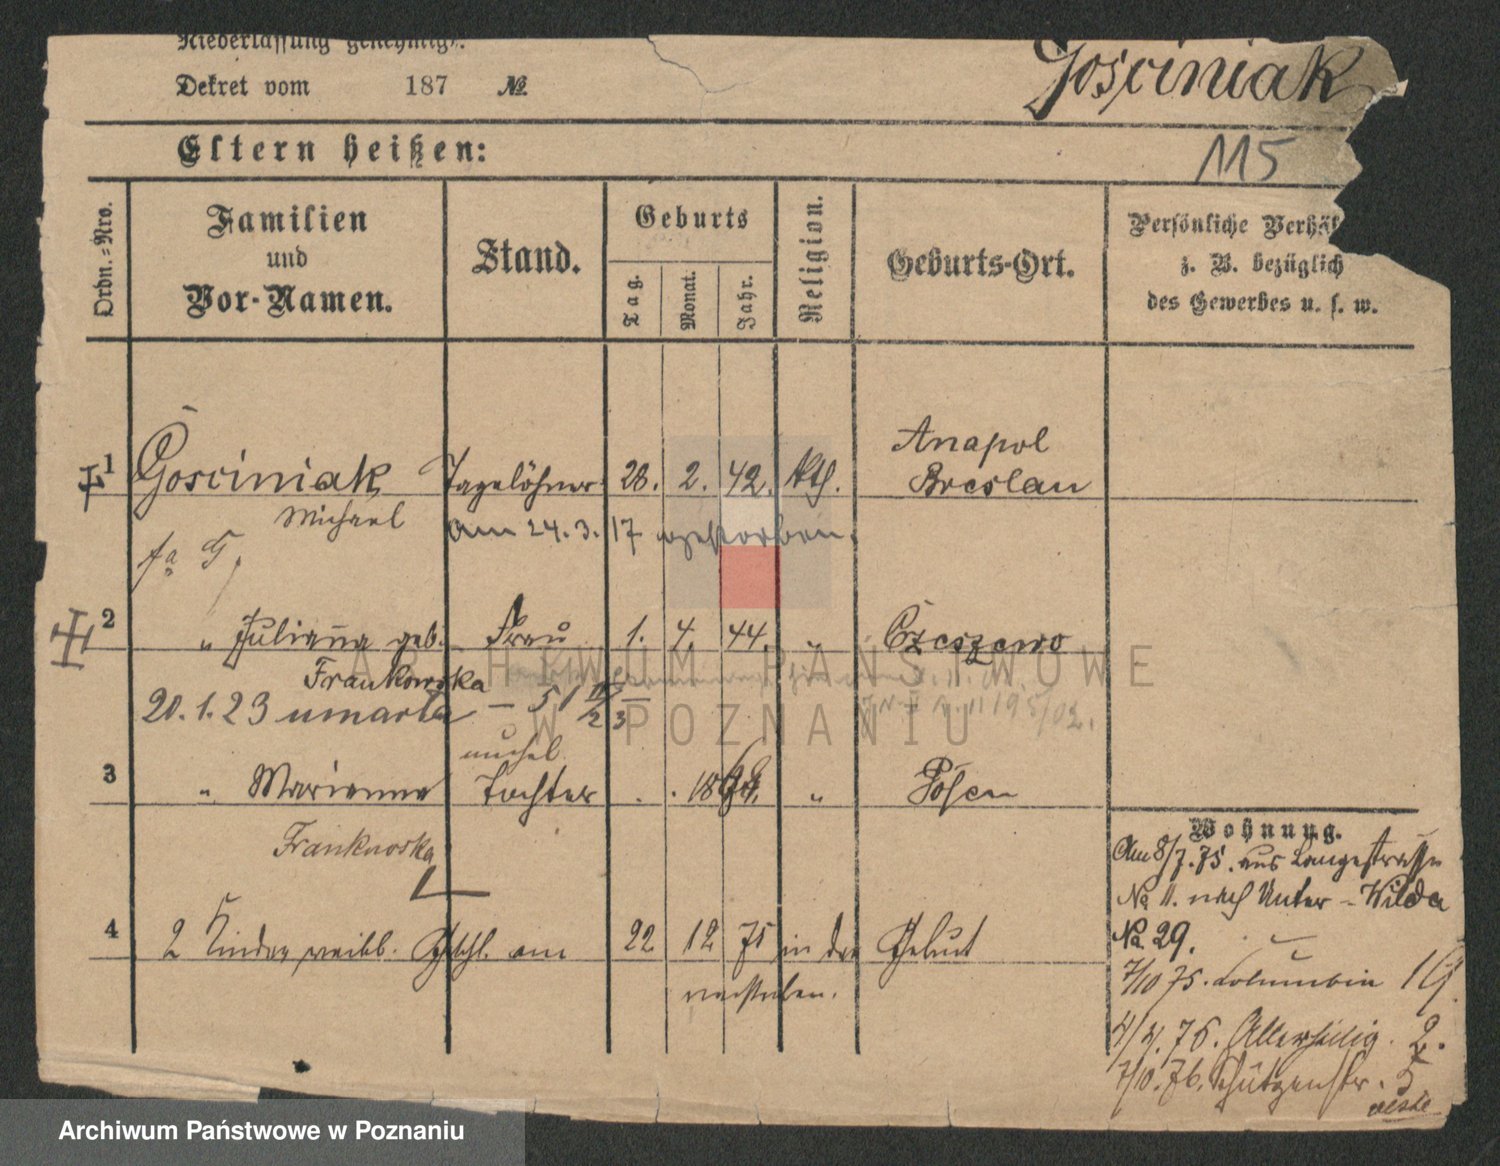 Niederlassung genehmigt.
Dekret vom 187 №
Gosciniak
Eltern heißen:
115
Ordn.-Nro.
Familien
und
Vor-Namen.
Stand.
Geburts
Tag.
Monat.
Jahr.
Religion.
Geburts-Ort.
Persönliche Verhäl
z. B. bezüglich
des Gewerbes u. s. w.
1 Gosciniak Tagelöhner 28. 2. 42. kth. Anapol
Breslau
Michael am 24. 3. 17 gestorben.
fa G,
2 " Julianna geb. Frau 1. 4. 44. " Czeszewo
Frankowska
20. 1. 23 umarła - 51
unehel.
3 " Marianna Tochter . . " Posen
Frankowska
4 2 Kinder weibl. Geschl. am 22 12 75 in der Geburt
verstorben.
Wohnung.
Am 8/7. 75. aus Langestrasse
No 11. nach Unter-Wilda
No 29.
7/10 75. Columbia
76. Allerheilig. 2.
7/10. 76. Schützenstr. 5
ARCHIWUM PAŃSTWOWE
W POZNANIU
Archiwum Państwowe w Poznaniu